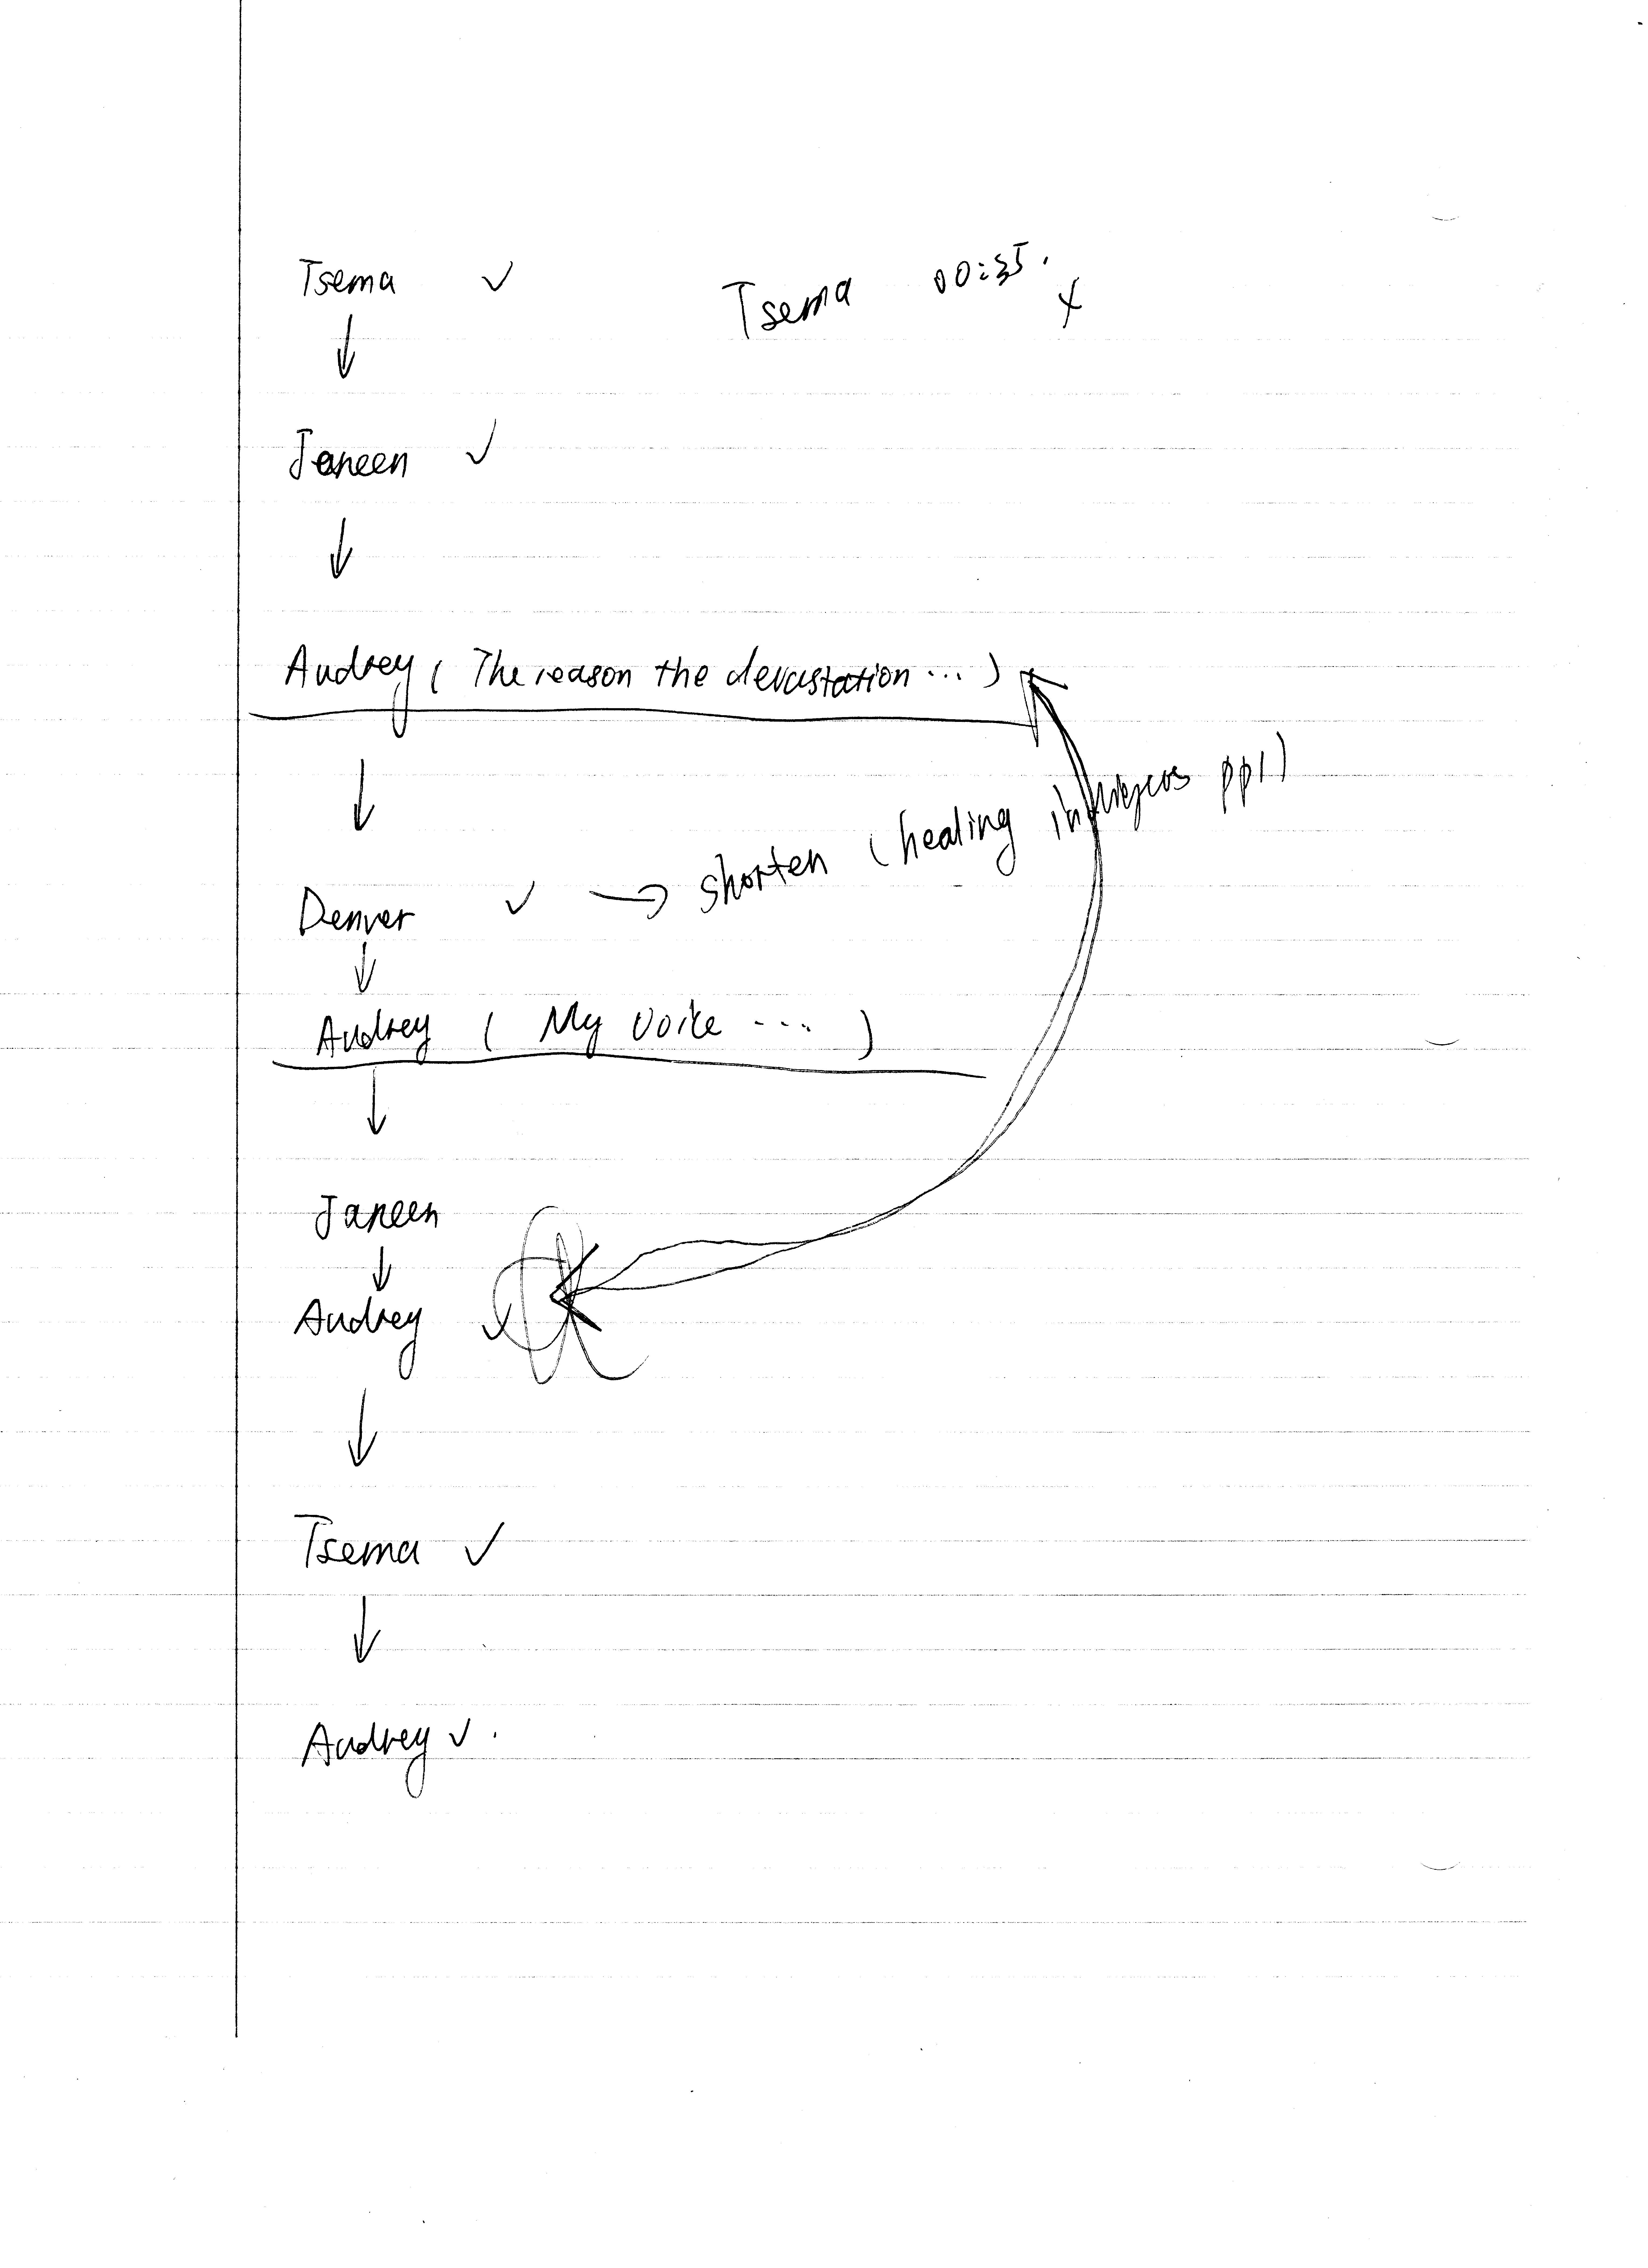 Tsema ✓ Tsema 00:35. x
↓
Janeen ✓
↓
Audrey ( The reason the devastation ... )
↓
Denver ✓ → shorten (healing ppl)
↓
Audrey ( My voice ... )
↓
Janeen
↓
Audrey ✓
↓
Tsema ✓
↓
Audrey ✓ .